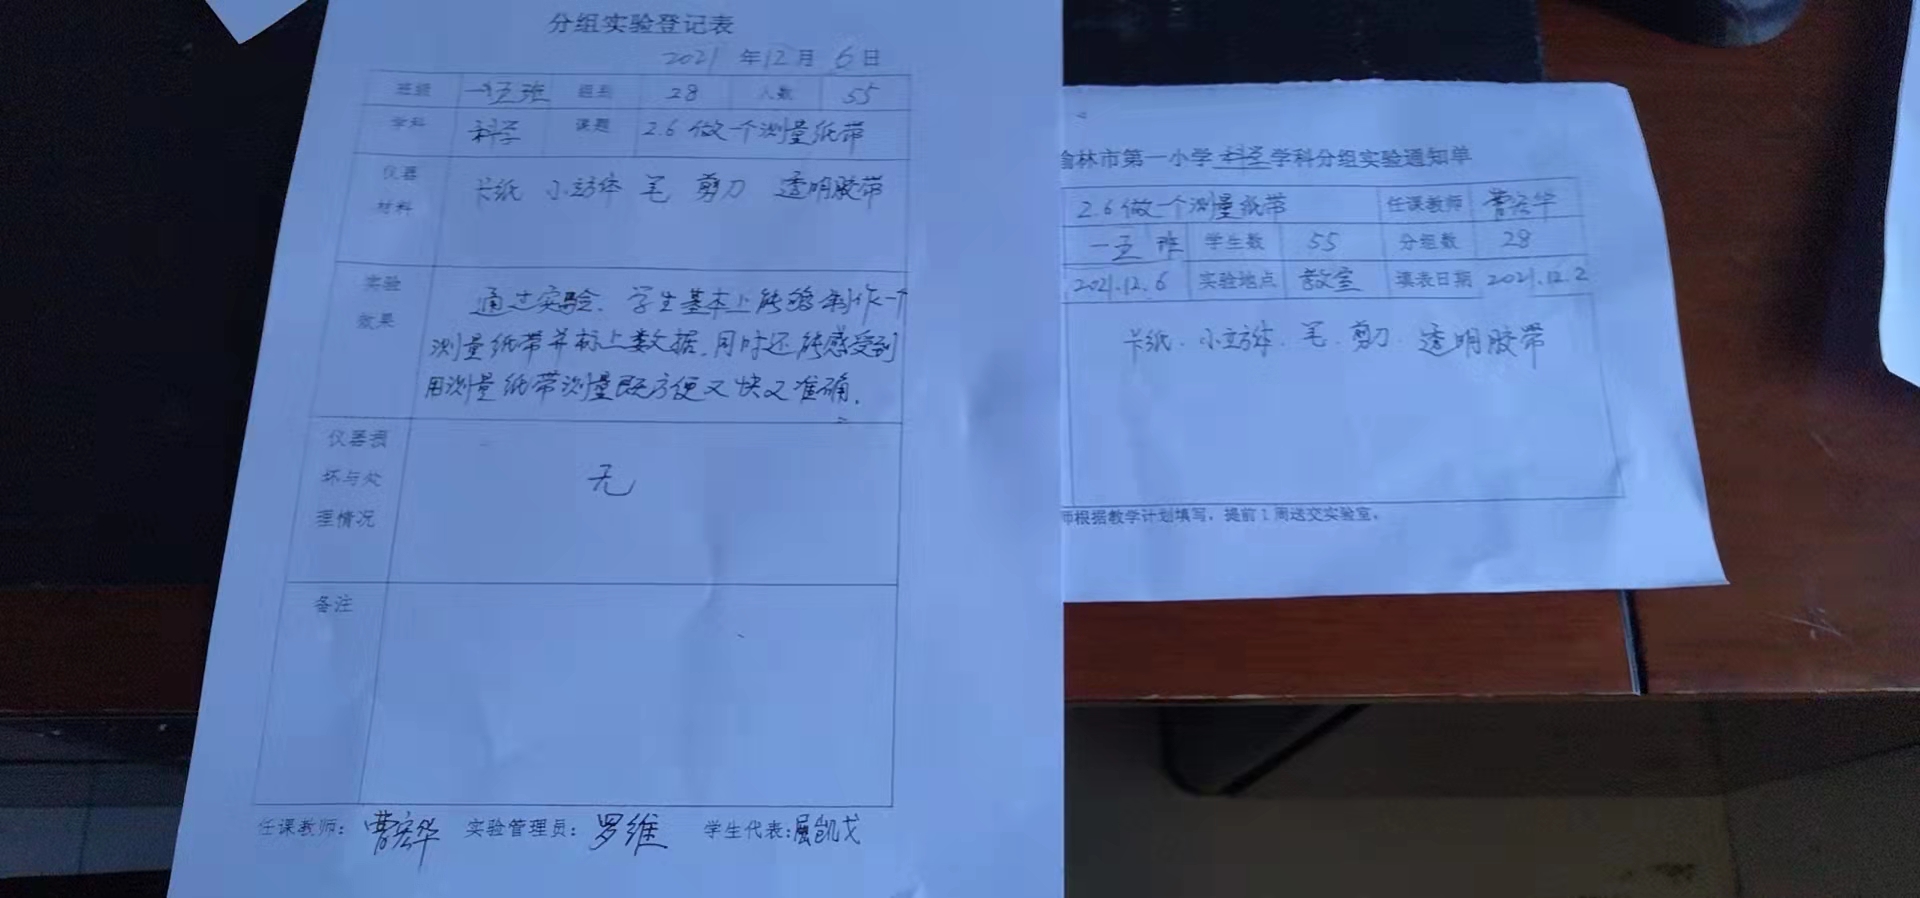 分组实验登记表
2021 年 12 月 6 日
班级 一五班 组别 28 人数 55
学科 科学 课题 2.6 做一个测量纸带
仪器材料 卡纸 小立方体 笔 剪刀 透明胶带
实验 通过实验，学生基本上能够制作一个
效果 测量纸带并标上数据，同时还能感受到
用测量纸带测量既方便又快又准确。
仪器损
坏与处 无
理情况
备注
任课教师：曹宏华 实验管理员：罗维 学生代表：屈凯戈
榆林市第一小学科学学科分组实验通知单
2.6 做一个测量纸带 任课教师 曹宏华
一五 班 学生数 55 分组数 28
2021.12.6 实验地点 教室 填表日期 2021.12.2
卡纸、小立方体、笔、剪刀、透明胶带
师根据教学计划填写，提前1周送交实验室。